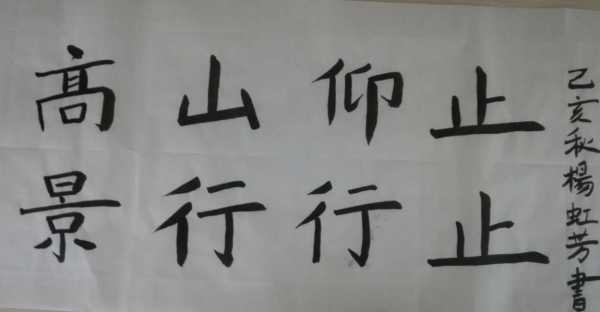 高山仰止
景行行止
己亥秋楊虹芳書